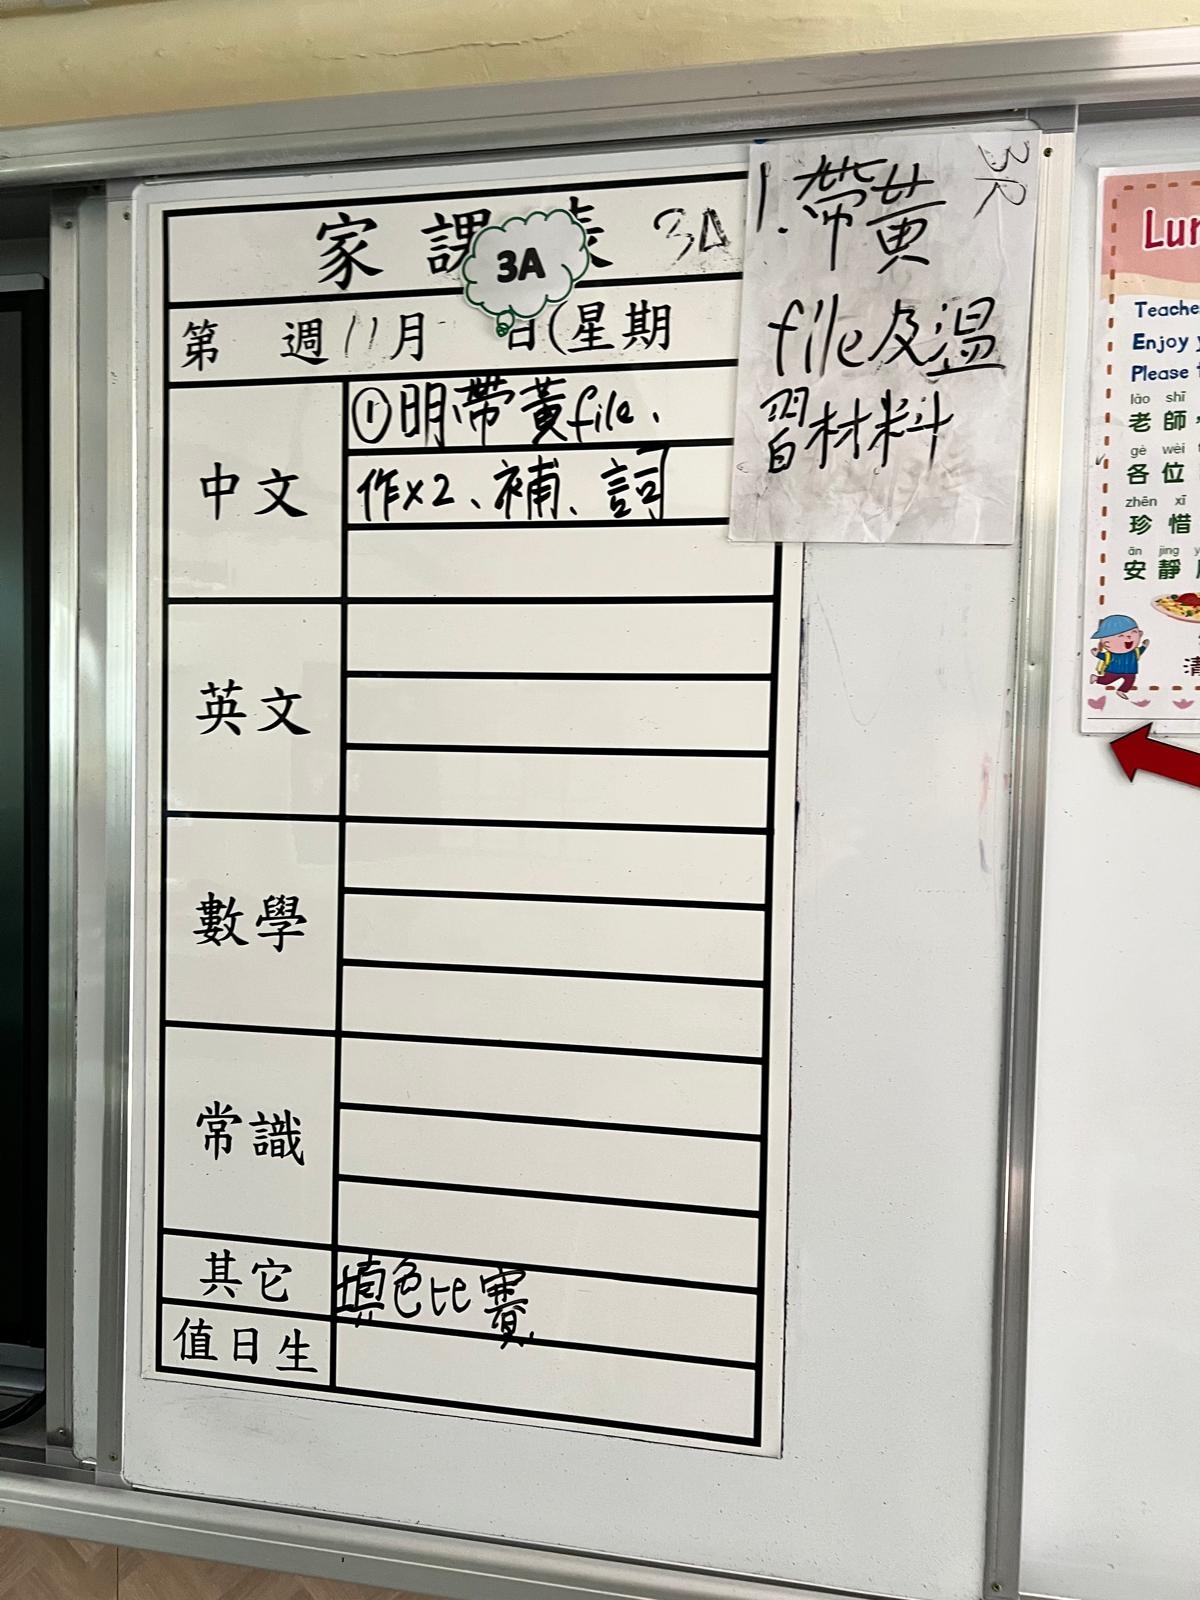 家課表 3A
3A
第 週 11月 日(星期
中文
①明帶黃file、
作x2、補、詞
英文
數學
常識
其它
填色比賽
值日生
3R
1.帶黃
file及温
習材料
Lun
Teache
Enjoy y
Please t
lǎo shī
老師,
gè wèi
各位
zhēn xī
珍惜
ān jìng y
安靜
清